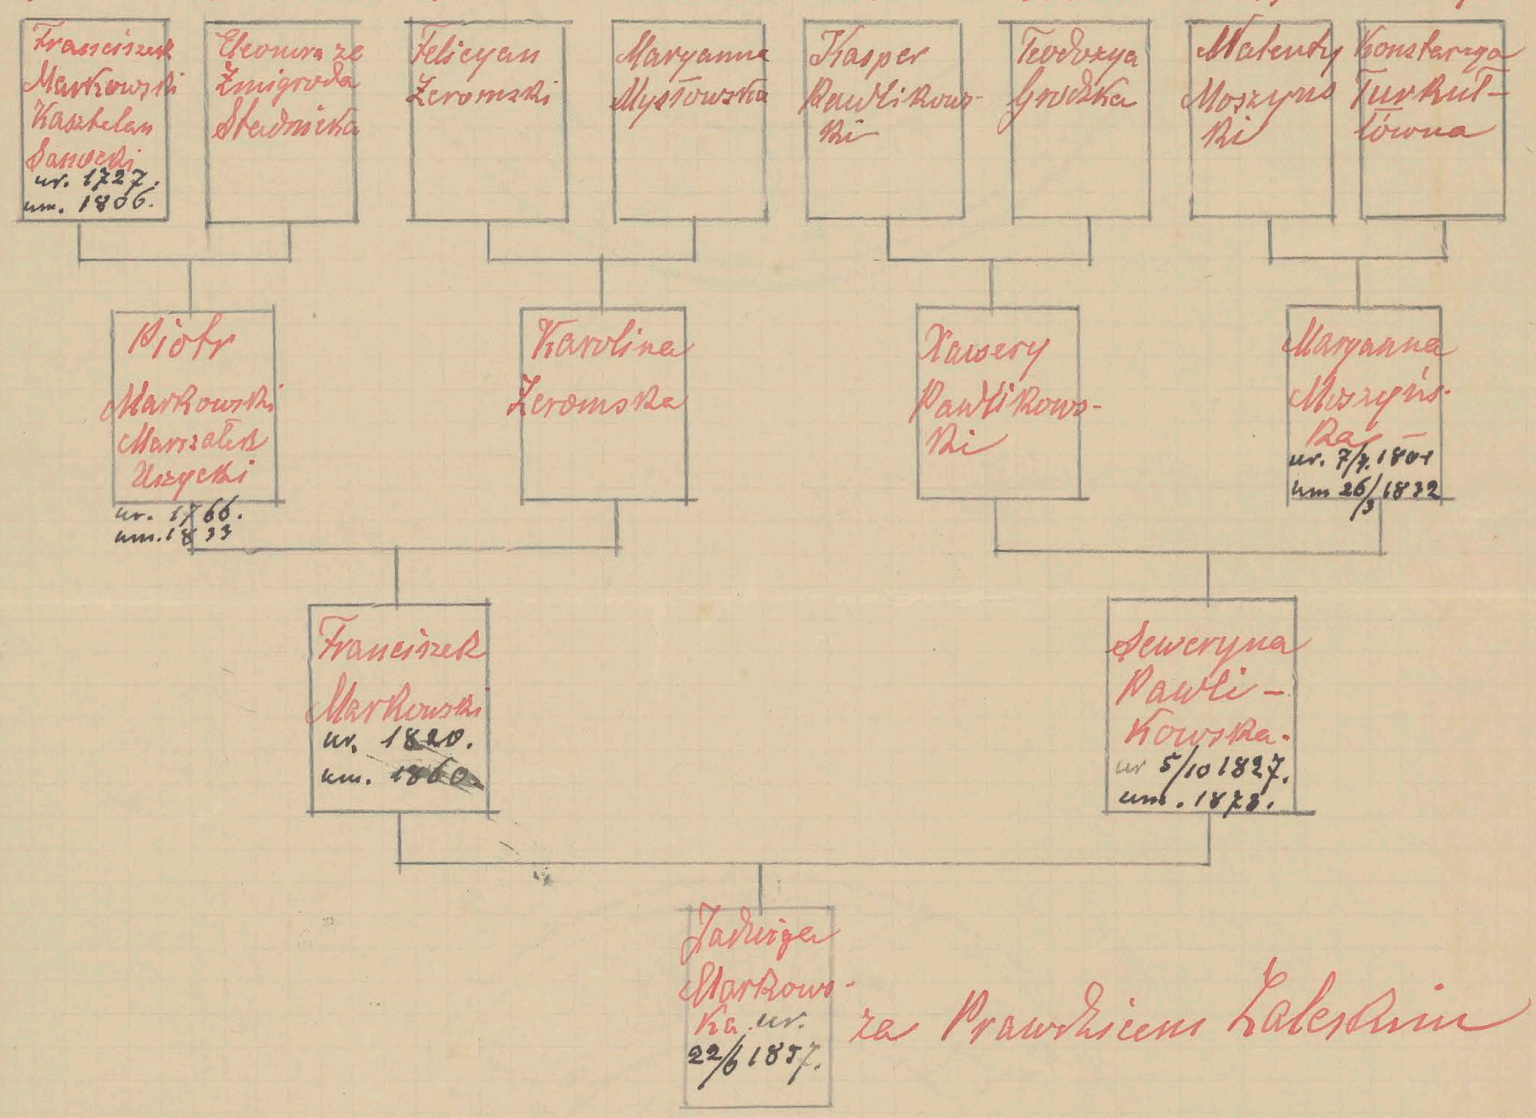 Franciszek
Markowski
Kasztelan
Sanocki
ur. 1727.
um. 1806.
Eleonora ze
Żmigroda
Stadnicka
Felicyan
Żeromski
Maryanna
Mysłowska
Kasper
Pawlikows-
ki
Teodozya
Grodzka
Walenty
Moszyńs
ki
Konstancya
Turkuł-
łówna
Piotr
Markowski
Marszałek
Uszycki
ur. 1766.
um. 1833
Karolina
Żeromska
Xawery
Pawlikows-
ki
Maryanna
Moszyńs-
ka
ur. 7/7. 1801
um 26/3 1832
Franciszek
Markowski
ur. 1820.
um. 1860.
Seweryna
Pawli-
kowska.
ur 5/10 1827.
um. 1873.
Jadwiga
Markows-
ka ur.
22/6 1857.
za Prawdzicem Zaleskim